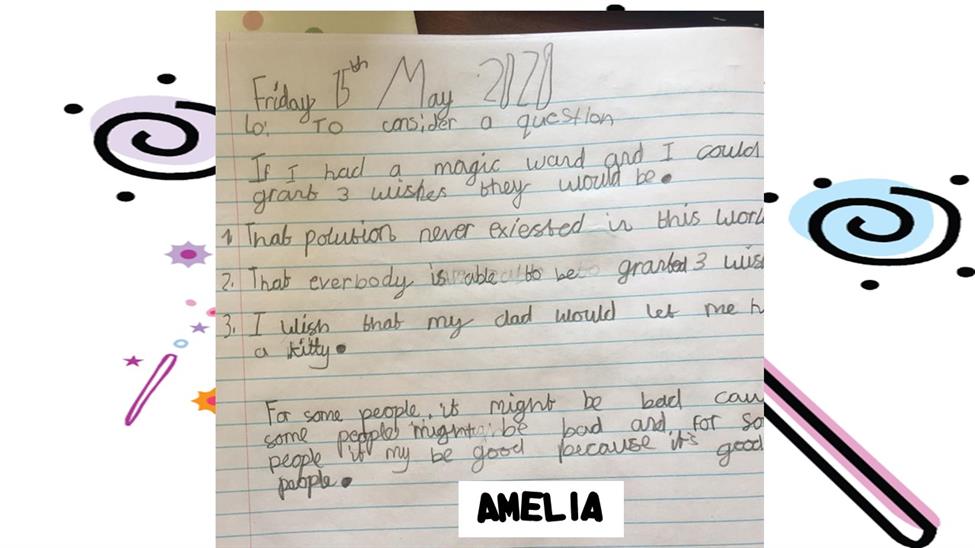 Friday 15th May 2020
Lo: To consider a question
If I had a magic ward and I could
grant 3 wishes they would be.
1. That polution never exiested in this worl
2. That everbody is able to be granted 3 wis
3. I wish that my dad would let me h
a kitty.
For some people, it might be bad cau
some people might be bad and for so
people it my be good because it's good
people.
AMELIA